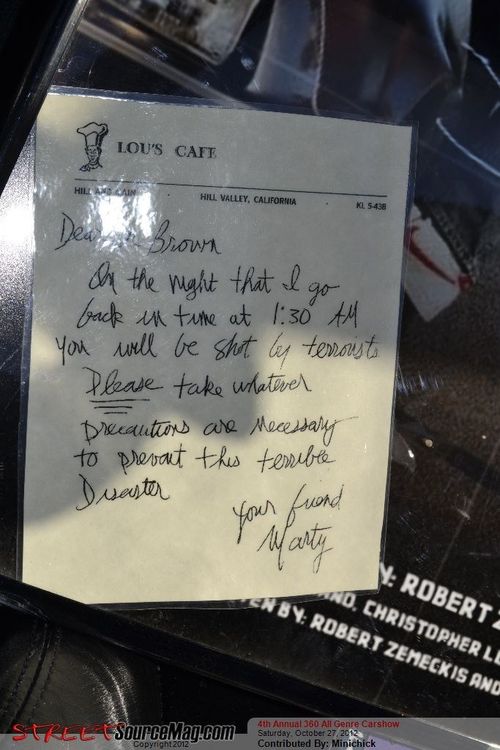 LOU'S CAFE
HILL AND MAIN HILL VALLEY, CALIFORNIA KL 5-43B
Dear Dr Brown
On the night that I go
back in time at 1:30 AM
You will be shot by terrorists
Please take whatever
precautions are necessary
to prevent this terrible
Disaster
your friend
Marty
Y: ROBERT Z
ND, CHRISTOPHER L
TEN BY: ROBERT ZEMECKIS AND
STREETSourceMag.com
Copyright 2012
4th Annual 360 All Genre Carshow
Saturday, October 27, 2012
Contributed By: Minichick